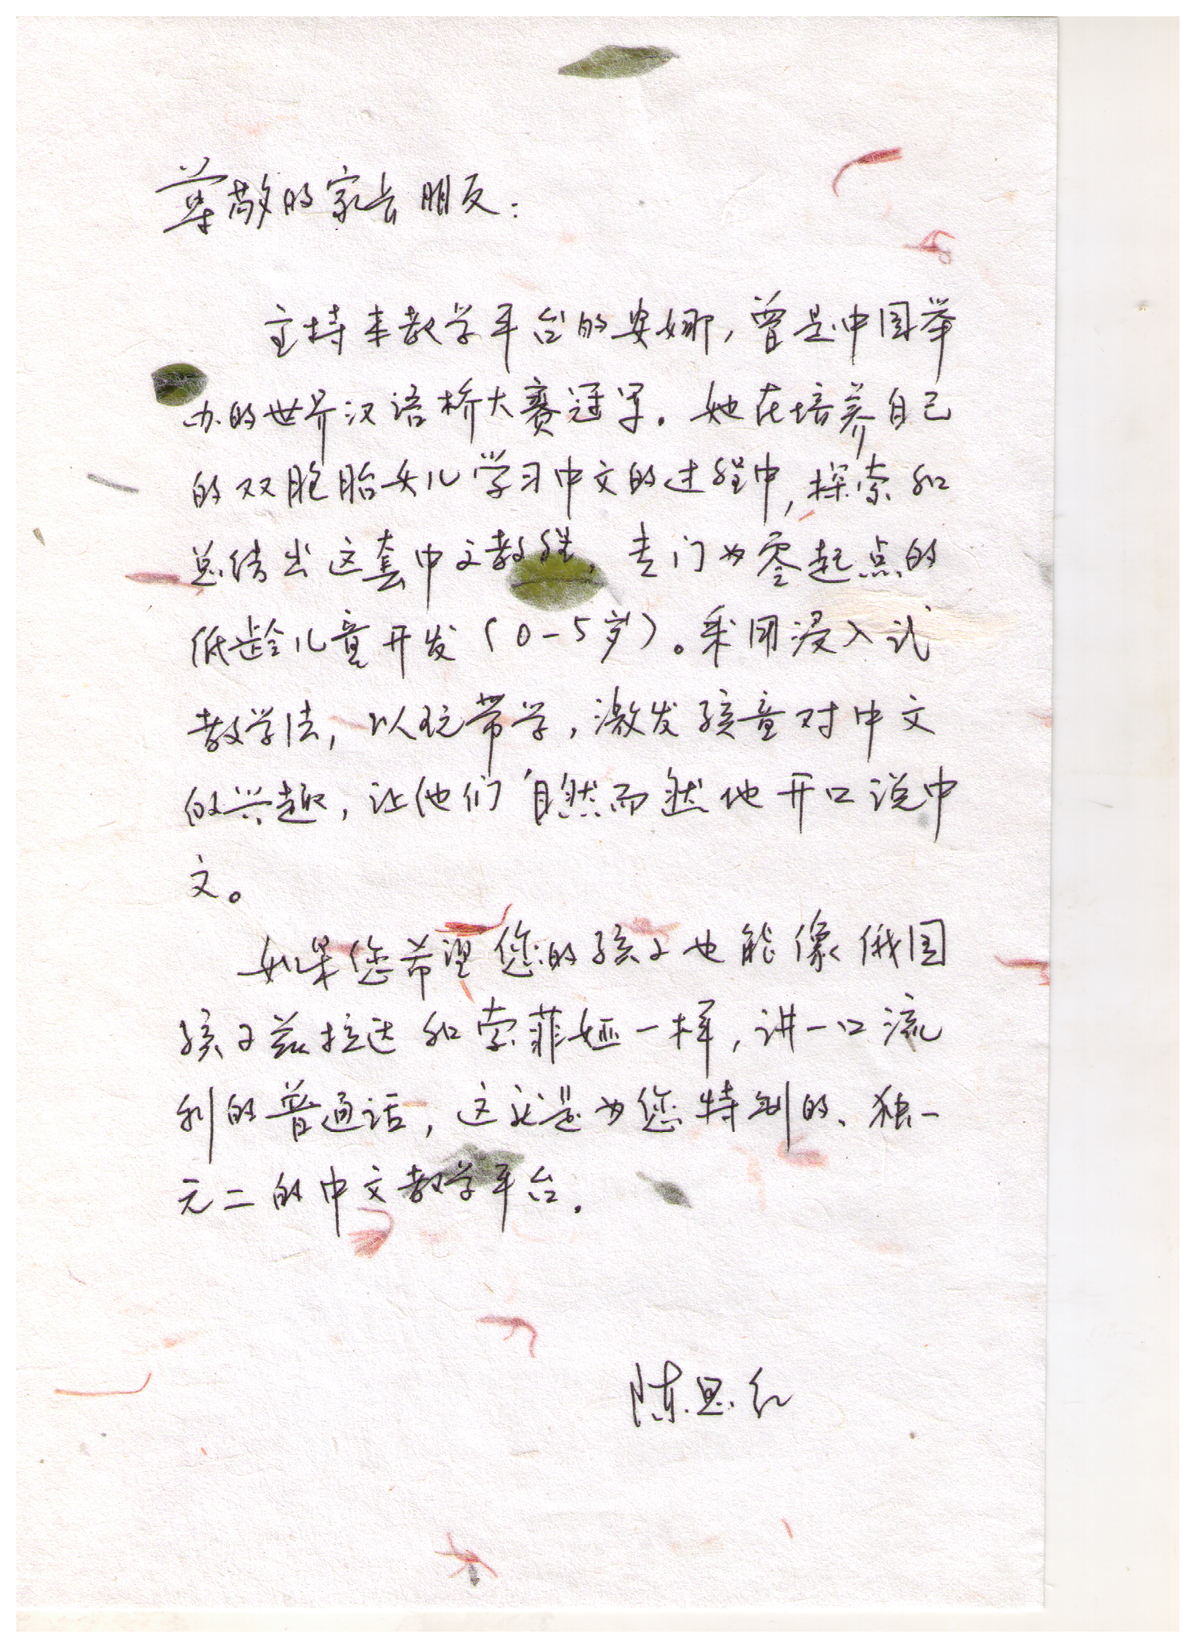 尊敬的家长朋友:
主持本教学平台的安娜,曾是中国举
办的世界汉语桥大赛冠军。她在培养自己
的双胞胎女儿学习中文的过程中,探索和
总结出这套中文教程,专门为零起点的
低龄儿童开发(0-5岁)。采用浸入式
教学法,以玩带学,激发孩童对中文
的兴趣,让他们自然而然地开口说中
文。
如果您希望您的孩子也能像俄国
孩子兹拉达和索菲娅一样,讲一口流
利的普通话,这就是为您特别的、独一
无二的中文教学平台。
陈思红